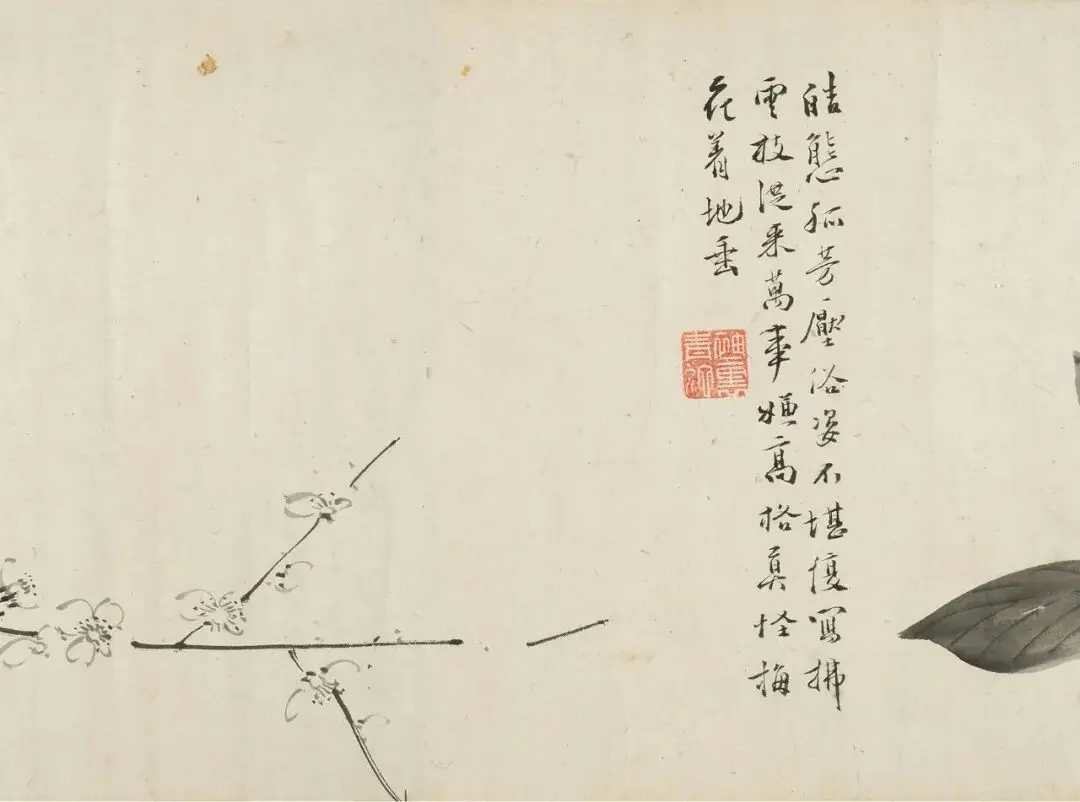 皓態孤芳壓俗姿不堪復寫拂
雲枝從來萬事嫌高格莫怪梅
花着地垂
袖裏
青蛇